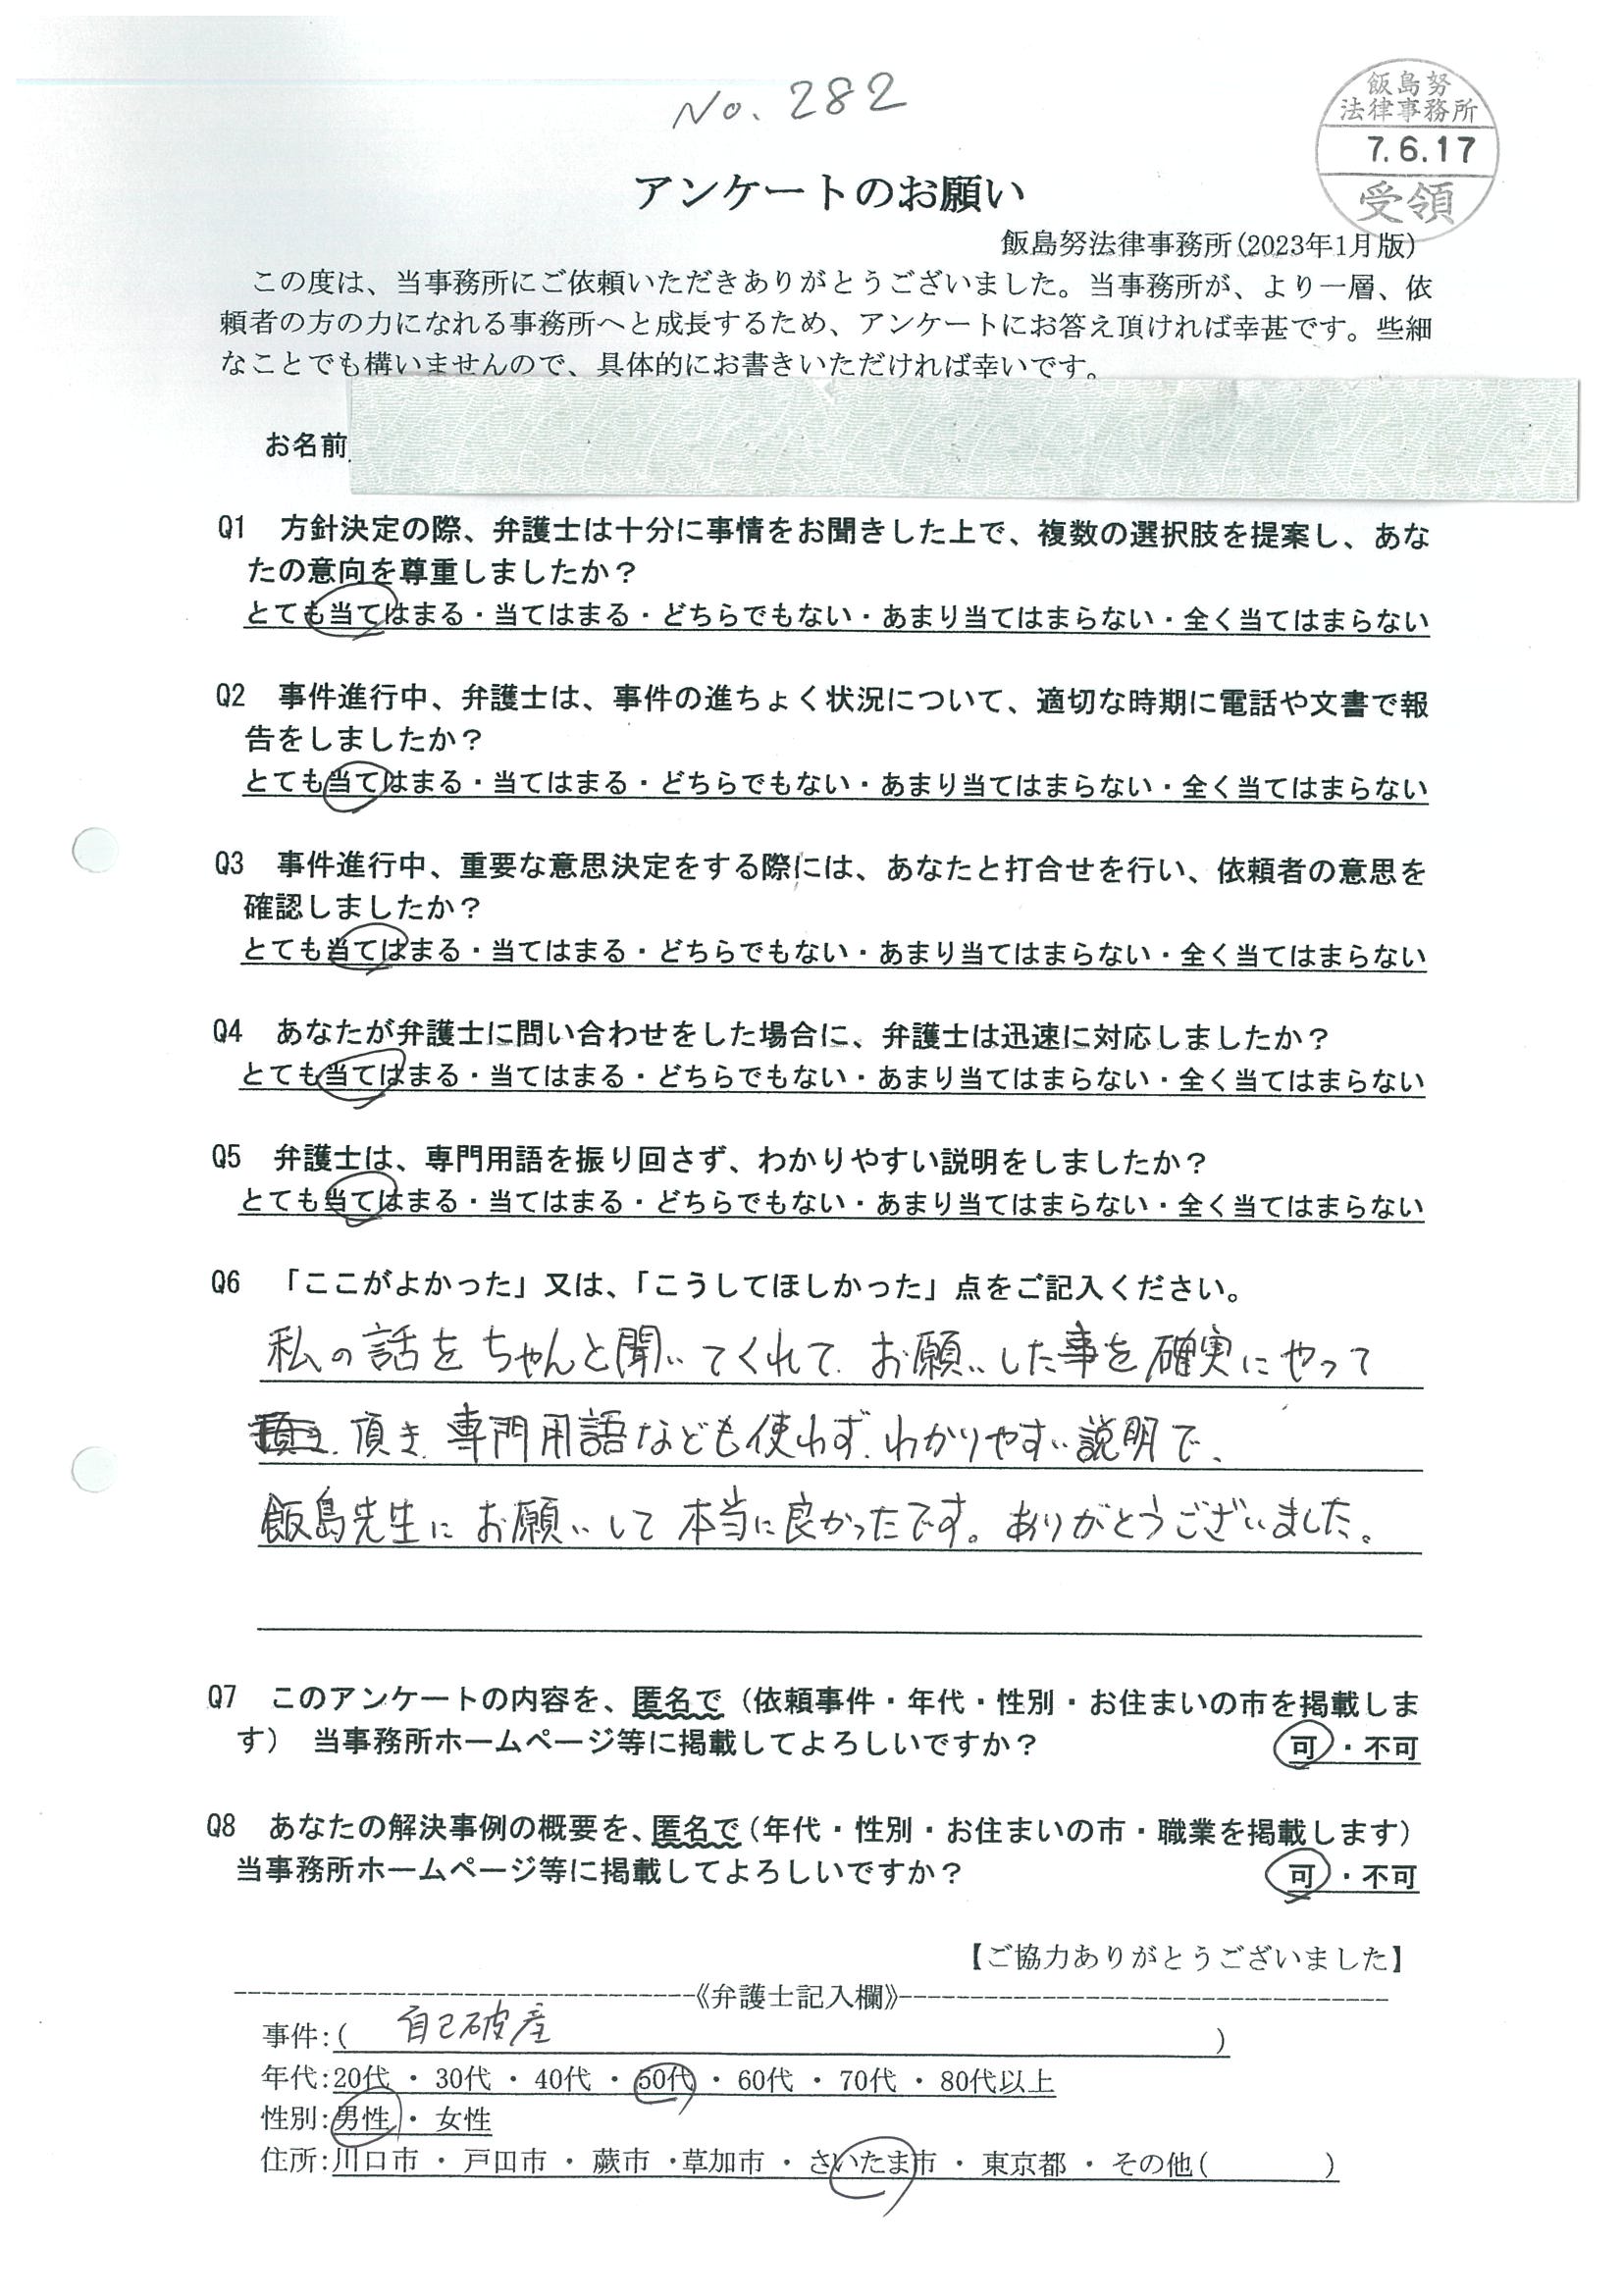 No. 282
飯島努
法律事務所
7.6.17
受領
アンケートのお願い
飯島努法律事務所(2023年1月版)
この度は、当事務所にご依頼いただきありがとうございました。当事務所が、より一層、依
頼者の方の力になれる事務所へと成長するため、アンケートにお答え頂ければ幸甚です。些細
なことでも構いませんので、具体的にお書きいただければ幸いです。
お名前
Q1 方針決定の際、弁護士は十分に事情をお聞きした上で、複数の選択肢を提案し、あな
たの意向を尊重しましたか？
とても当てはまる・当てはまる・どちらでもない・あまり当てはまらない・全く当てはまらない
Q2 事件進行中、弁護士は、事件の進ちょく状況について、適切な時期に電話や文書で報
告をしましたか？
とても当てはまる・当てはまる・どちらでもない・あまり当てはまらない・全く当てはまらない
Q3 事件進行中、重要な意思決定をする際には、あなたと打合せを行い、依頼者の意思を
確認しましたか？
とても当てはまる・当てはまる・どちらでもない・あまり当てはまらない・全く当てはまらない
Q4 あなたが弁護士に問い合わせをした場合に、弁護士は迅速に対応しましたか？
とても当てはまる・当てはまる・どちらでもない・あまり当てはまらない・全く当てはまらない
Q5 弁護士は、専門用語を振り回さず、わかりやすい説明をしましたか？
とても当てはまる・当てはまる・どちらでもない・あまり当てはまらない・全く当てはまらない
Q6 「ここがよかった」又は、「こうしてほしかった」点をご記入ください。
私の話をちゃんと聞いてくれて、お願いした事を確実にやって
頂き、専門用語なども使わず、わかりやすい説明で、
飯島先生にお願いして本当に良かったです。ありがとうございました。
Q7 このアンケートの内容を、匿名で（依頼事件・年代・性別・お住まいの市を掲載しま
す） 当事務所ホームページ等に掲載してよろしいですか？ 可・不可
Q8 あなたの解決事例の概要を、匿名で（年代・性別・お住まいの市・職業を掲載します）
当事務所ホームページ等に掲載してよろしいですか？ 可・不可
【ご協力ありがとうございました】
《弁護士記入欄》
事件:( 自己破産 )
年代:20代 ・ 30代 ・ 40代 ・ 50代 ・ 60代 ・ 70代 ・ 80代以上
性別:男性 ・ 女性
住所:川口市 ・ 戸田市 ・ 蕨市 ・草加市 ・ さいたま市 ・ 東京都 ・ その他( )